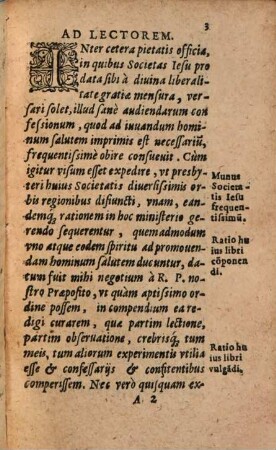 3
AD LECTOREM.
INter cetera pietatis officia,
in quibus Societas Iesu pro
data sibi à diuina liberali
tate gratiæ mensura, ver
sari solet, illud sanè audiendarum con
fessionum, quod ad iuuandum homi
num salutem imprimis est necessariũ,
frequentissimè obire consueuit. Cùm
igitur visum esset expedire, vt presby
teri huius Societatis diuersissimis or
bis regionibus disiuncti, vnam, ean
demq́, rationem in hoc ministerio ge
rendo sequerentur, quemadmodum
vno atque eodem spiritu ad promouen
dam hominum salutem ducuntur, da
tum fuit mihi negotium à R. P. no
stro Præposito, vt quàm aptissimo or
dine possem, in compendium ea re
digi curarem, quæ partim lectione,
partim obseruatione, crebrisq́, tum
meis, tum aliorum experimentis vtilia
esse & confessarijs & cõfitentibus
comperissem. Nec verò quisquam ex-
A 2
Munus
Societa
tis Iesu
frequen
tissimũ.
Ratio hu
ius libri
cõponen
di.
Ratio hu
ius libri
vulgãdi.